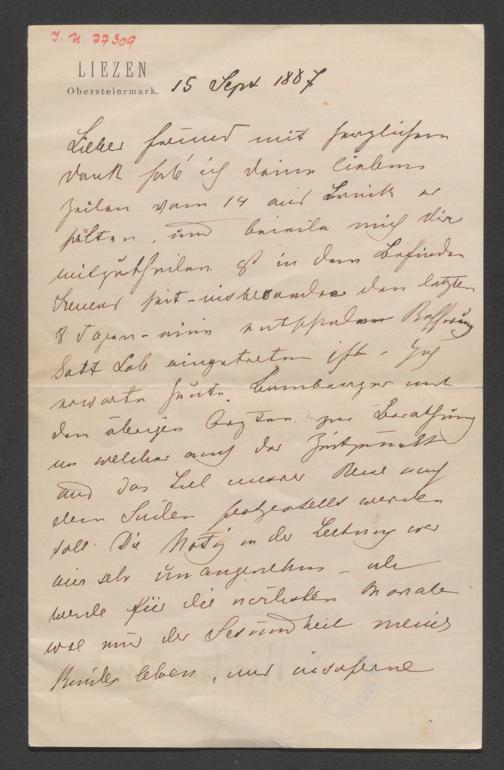 I. N. 77309
LIEZEN
Obersteiermark.
15 Sept 1887
Lieber Freund mit herzlichem
Dank hab' ich deine lieben
Zeilen vom 14 aus er
halten, und beeile mich dir
mitzutheilen daß in dem Befinden
Irenens seit - insbesondre den letzten
8 Tagen - eine entschiedene Besserung
Gott Lob eingetreten ist - Ich
erwarte heute Bamberger mit
den übrigen Ärzten zur Berathung
in welcher auch der Zeitpunkt
und das Ziel unserer Reise nach
dem Süden festgestellt werden
soll. Die Notiz in der Zeitung war
mir sehr unangenehm - ich
werde für die nächsten Monate
wol nur der Gesundheit meines
Kindes leben, und insoferne